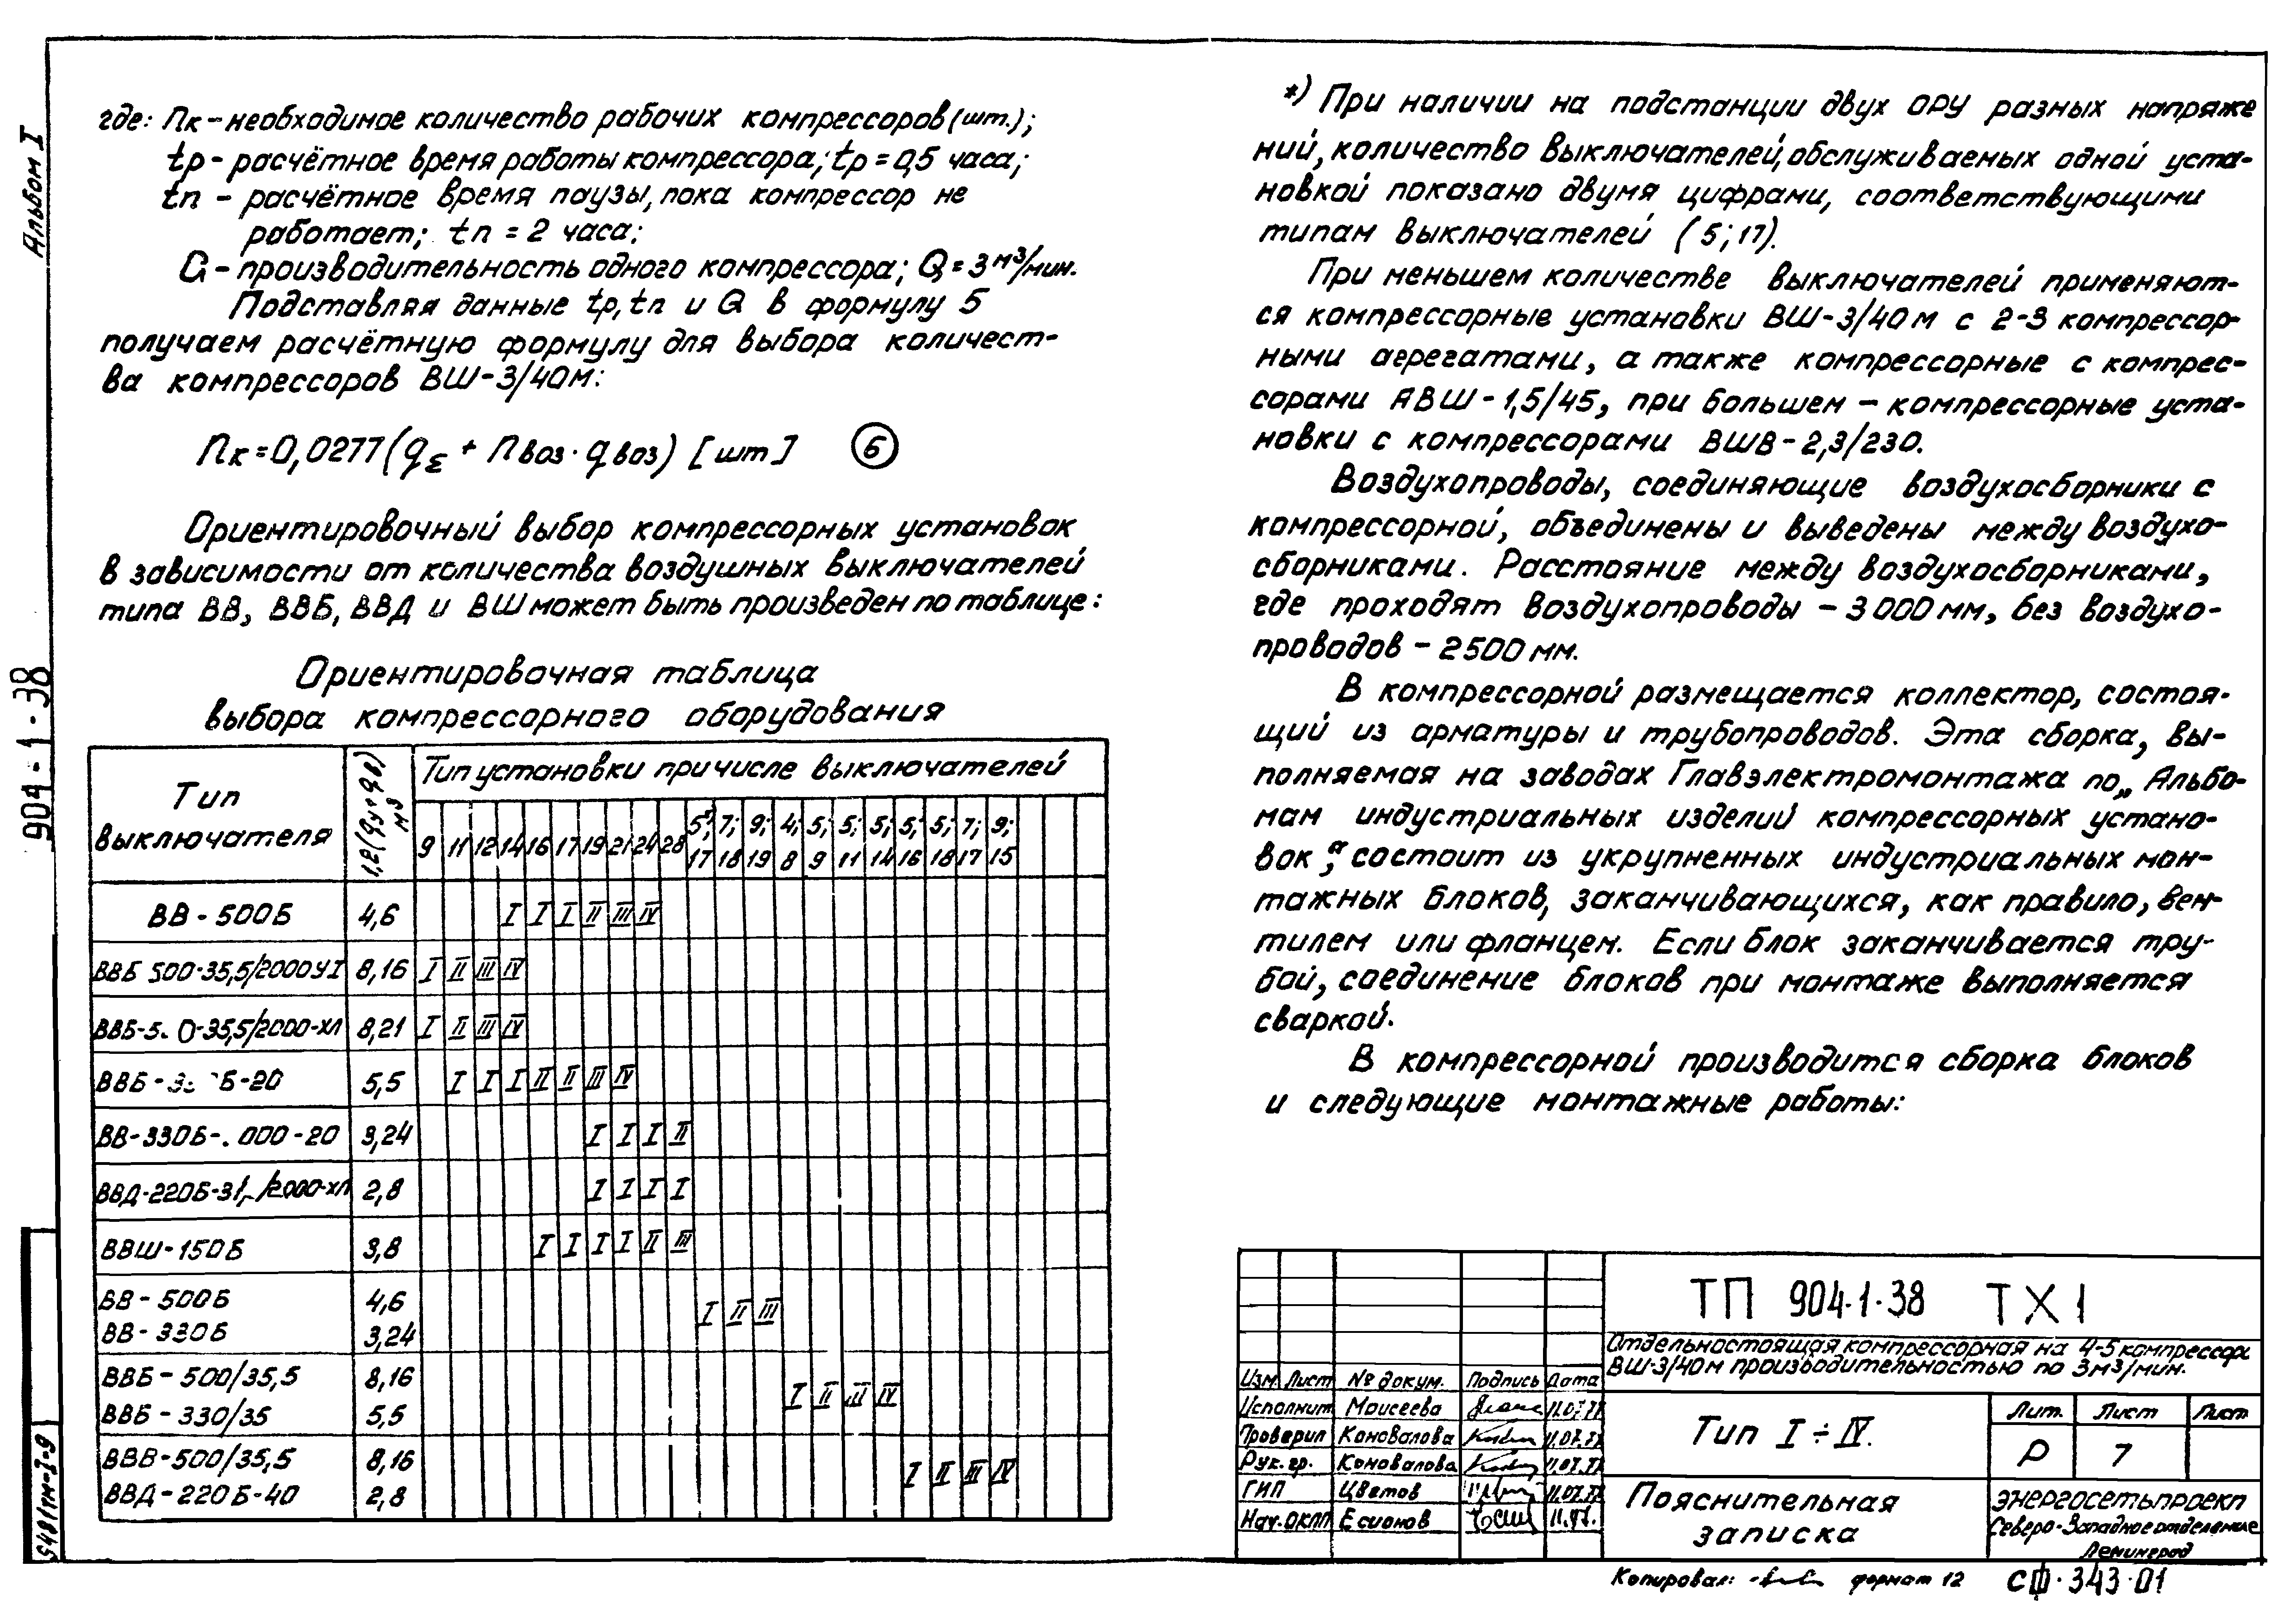 Альбом I
904-1-38
5481тм-I-9
где: Пк – необходимое количество рабочих компрессоров (шт.);
tр – расчётное время работы компрессора; tр = 0,5 часа;
tп – расчётное время паузы, пока компрессор не
работает; tп = 2 часа;
Q – производительность одного компрессора; Q = 3 м³/мин.
Подставляя данные tр, tп и Q в формулу 5
получаем расчётную формулу для выбора количест-
ва компрессоров ВШ-3/40м:
Пк = 0,0277 (qΣ + Пвоз · qвоз) [шт] 6
Ориентировочный выбор компрессорных установок
в зависимости от количества воздушных выключателей
типа ВВ, ВВБ, ВВД и ВШ может быть произведен по таблице:
Ориентировочная таблица
выбора компрессорного оборудования
Тип выключателя 1,2(qу+qв) м³ Тип установки при числе выключателей
9 11 12 14 16 17 19 21 24 28 5*; 17 7; 18 9; 19 4; 8 5; 9 5; 11 5; 14 5; 16 5; 18 7; 17 9; 15
ВВ-500Б 4,6 I I I II III IV
ВВБ 500-35,5/2000У1 8,16 I II III IV
ВВБ-5 0-35,5/2000-ХЛ 8,21 I II III IV
ВВБ-3 Б-20 5,5 I I I II II III IV
ВВ-330Б- 000-20 3,24 I I I II
ВВД-220Б-31 /2000-ХЛ 2,8 I I I I
ВВШ-150Б 3,8 I I I I II III
ВВ-500Б 4,6
ВВ-330Б 3,24 I II III
ВВБ-500/35,5 8,16
ВВБ-330/35 5,5 I II III IV
ВВВ-500/35,5 8,16
ВВД-220Б-40 2,8 I II III IV
*) При наличии на подстанции двух ОРУ разных напряже
ний, количество выключателей, обслуживаемых одной уста-
новкой показано двумя цифрами, соответствующими
типам выключателей (5; 17).
При меньшем количестве выключателей применяют-
ся компрессорные установки ВШ-3/40м с 2-3 компрессор-
ными агрегатами, а также компрессорные с компрес-
сорами АВШ-1,5/45, при большем – компрессорные уста-
новки с компрессорами ВШВ-2,3/230.
Воздухопроводы, соединяющие воздухосборники с
компрессорной, объединены и выведены между воздухо-
сборниками. Расстояние между воздухосборниками,
где проходят воздухопроводы – 3000 мм, без воздухо-
проводов – 2500 мм.
В компрессорной размещается коллектор, состоя-
щий из арматуры и трубопроводов. Эта сборка, вы-
полняемая на заводах Главэлектромонтажа по „Альбо-
мам индустриальных изделий компрессорных устано-
вок“, состоит из укрупненных индустриальных мон-
тажных блоков, заканчивающихся, как правило, вен-
тилем или фланцем. Если блок заканчивается тру-
бой, соединение блоков при монтаже выполняется
сваркой.
В компрессорной производится сборка блоков
и следующие монтажные работы:
ТП 904-1-38 ТХ1
Отдельностоящая компрессорная на 4-5 компрессор.
ВШ-3/40м производительностью по 3м³/мин.
Изм. Лист № докум. Подпись Дата
Исполнит. Моисеева
Проверил Коновалова
Рук. гр. Коновалова
ГИП Цветов
Нач. ОКПП Есионов
Тип I÷IV.
Лит. Лист Лист
Р 7
Пояснительная
записка
Энергосетьпроект
Северо-Западное отделение
Ленинград
Копировал: формат 12 СФ-343-01